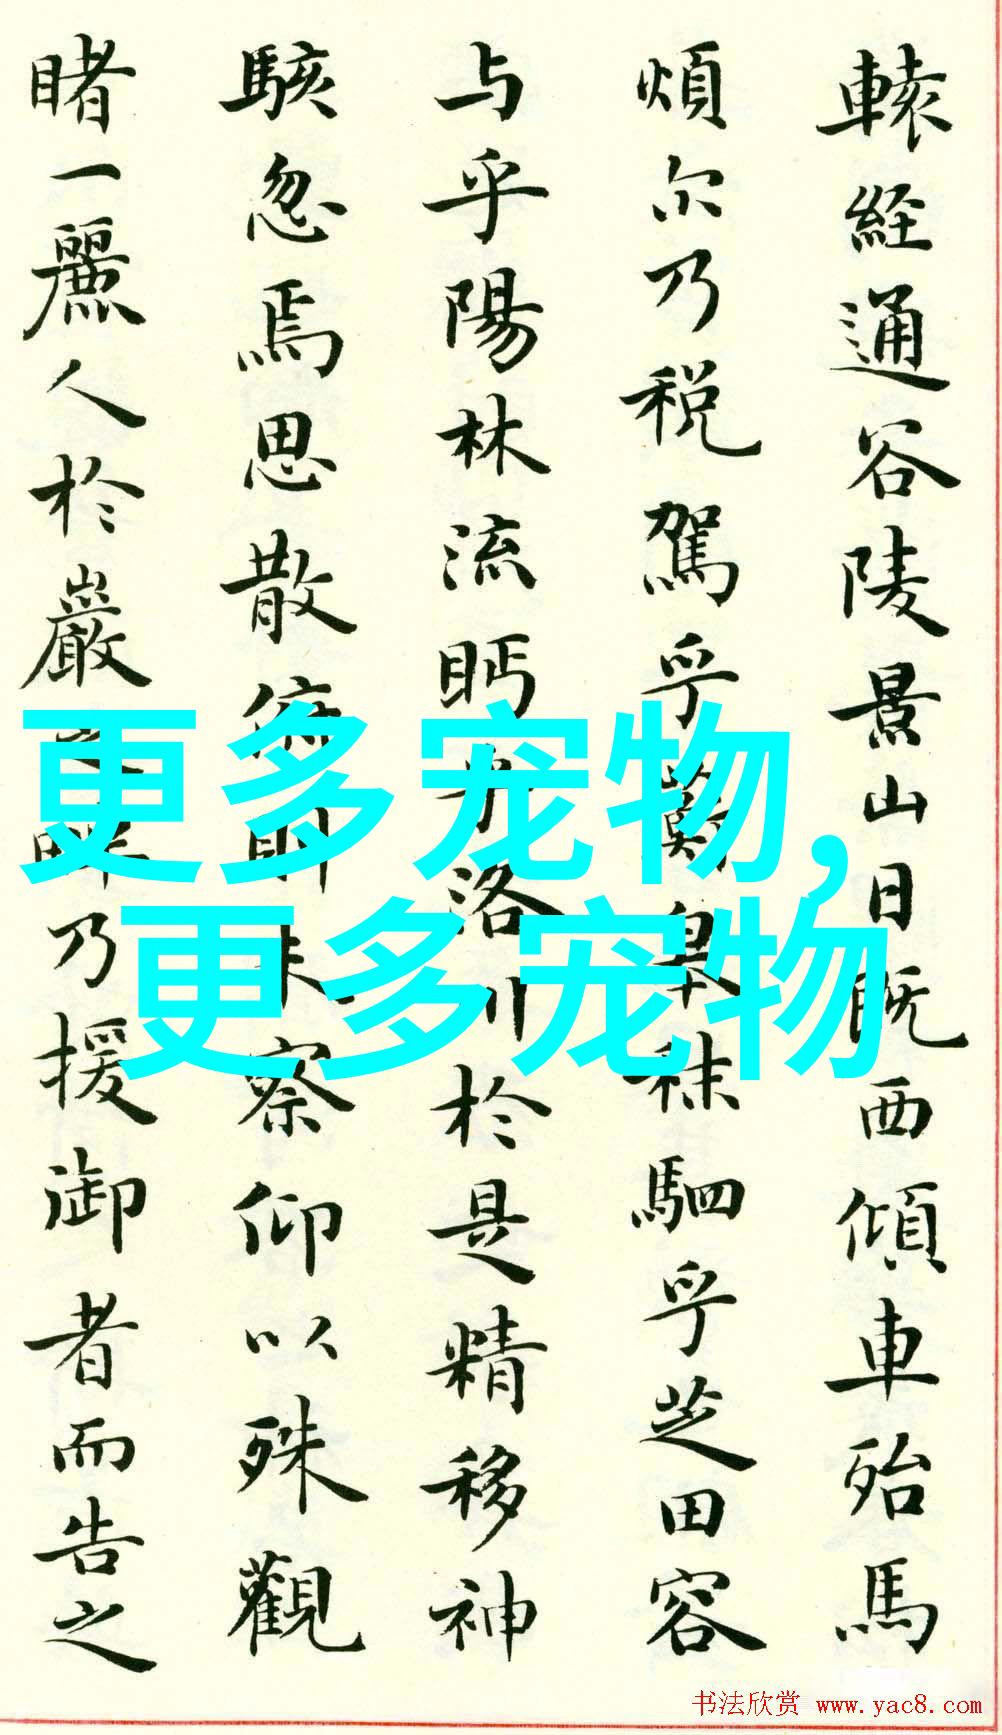 轅經通谷陵景山日既西傾車殆馬
煩尓乃税駕乎蘅皋秣駟乎芝田容
与乎陽林流眄乎洛川於是精移神
駭忽焉思散俯則未察仰以殊觀
睹一麗人於巖之畔乃援御者而告之
更多宠物,
更多宠物
书法欣赏 www.yac8.com